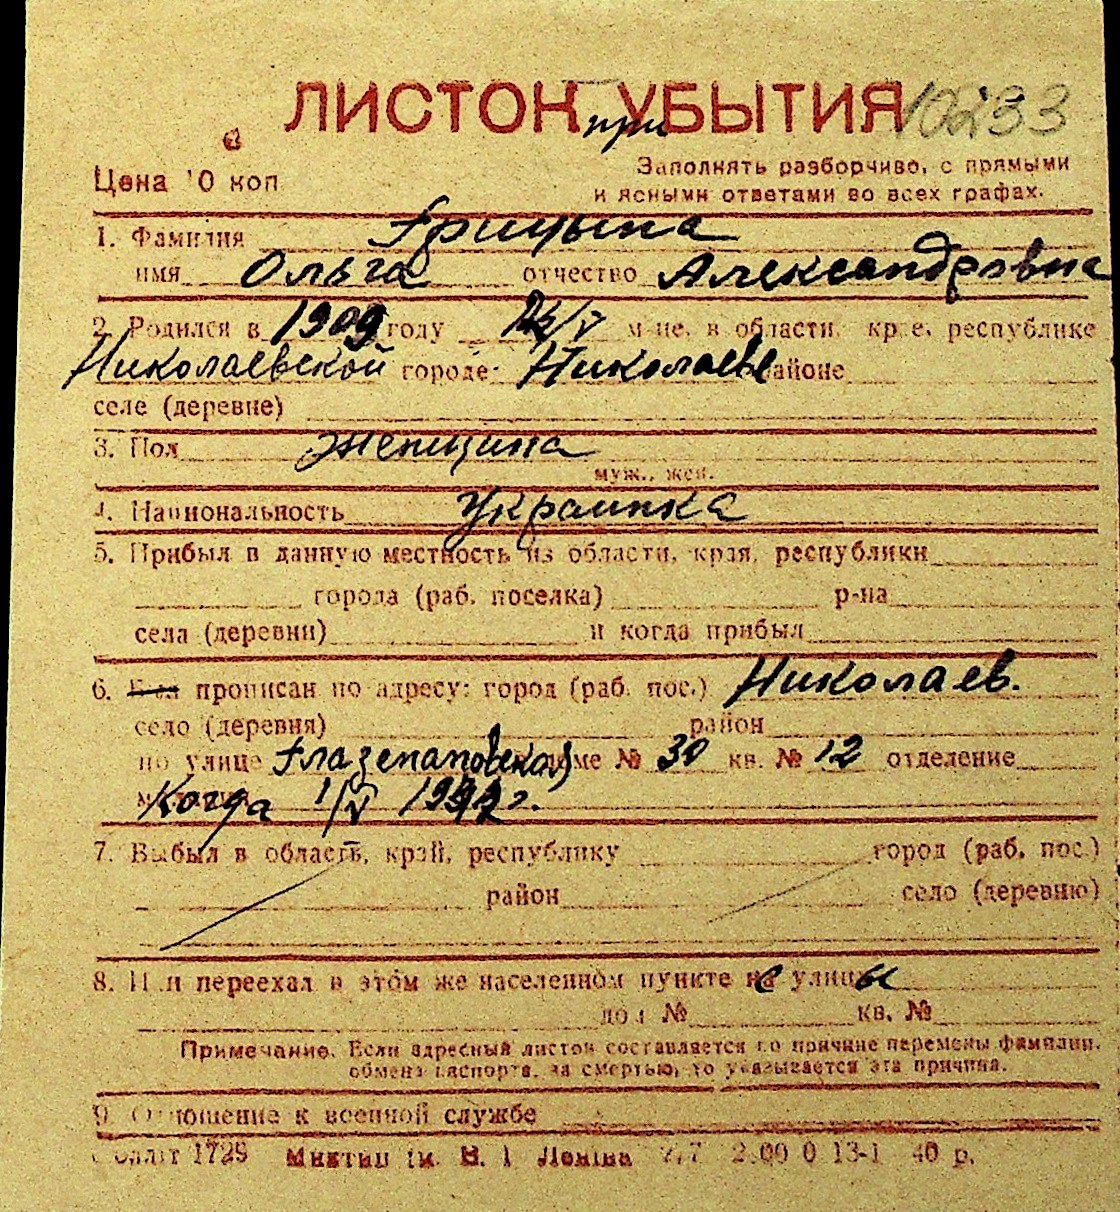 ЛИСТОК при УБЫТИЯ 10233
Цена 10 коп
Заполнять разборчиво, с прямыми
и ясными ответами во всех графах.
1. Фамилия Грицына
имя Ольга отчество Александровна
2. Родился в 1909 году м-це, в области, крае, республике
Николаевской городе Николаеве районе
селе (деревне)
3. Пол Женщина
муж., жен.
4. Национальность Украинка
5. Прибыл в данную местность из области, края, республики
города (раб. поселка) р-на
села (деревни) и когда прибыл
6. Был прописан по адресу: город (раб. пос.) Николаев.
село (деревня) район
по улице Глазенаповской доме № 30 кв. № 12 отделение
Когда 1/V г.
7. Выбыл в область, край, республику город (раб. пос.)
район село (деревню)
8. Или переехал в этом же населенном пункте с улицы
дом № кв. №
Примечание. Если адресный листок составляется по причине перемены фамилии,
обмена паспорта, за смертью, то указывается эта причина.
9. Отношение к военной службе
Обллит 1725 Миктип ім. В. І Леніна 2.00 0 13-1 40 р.